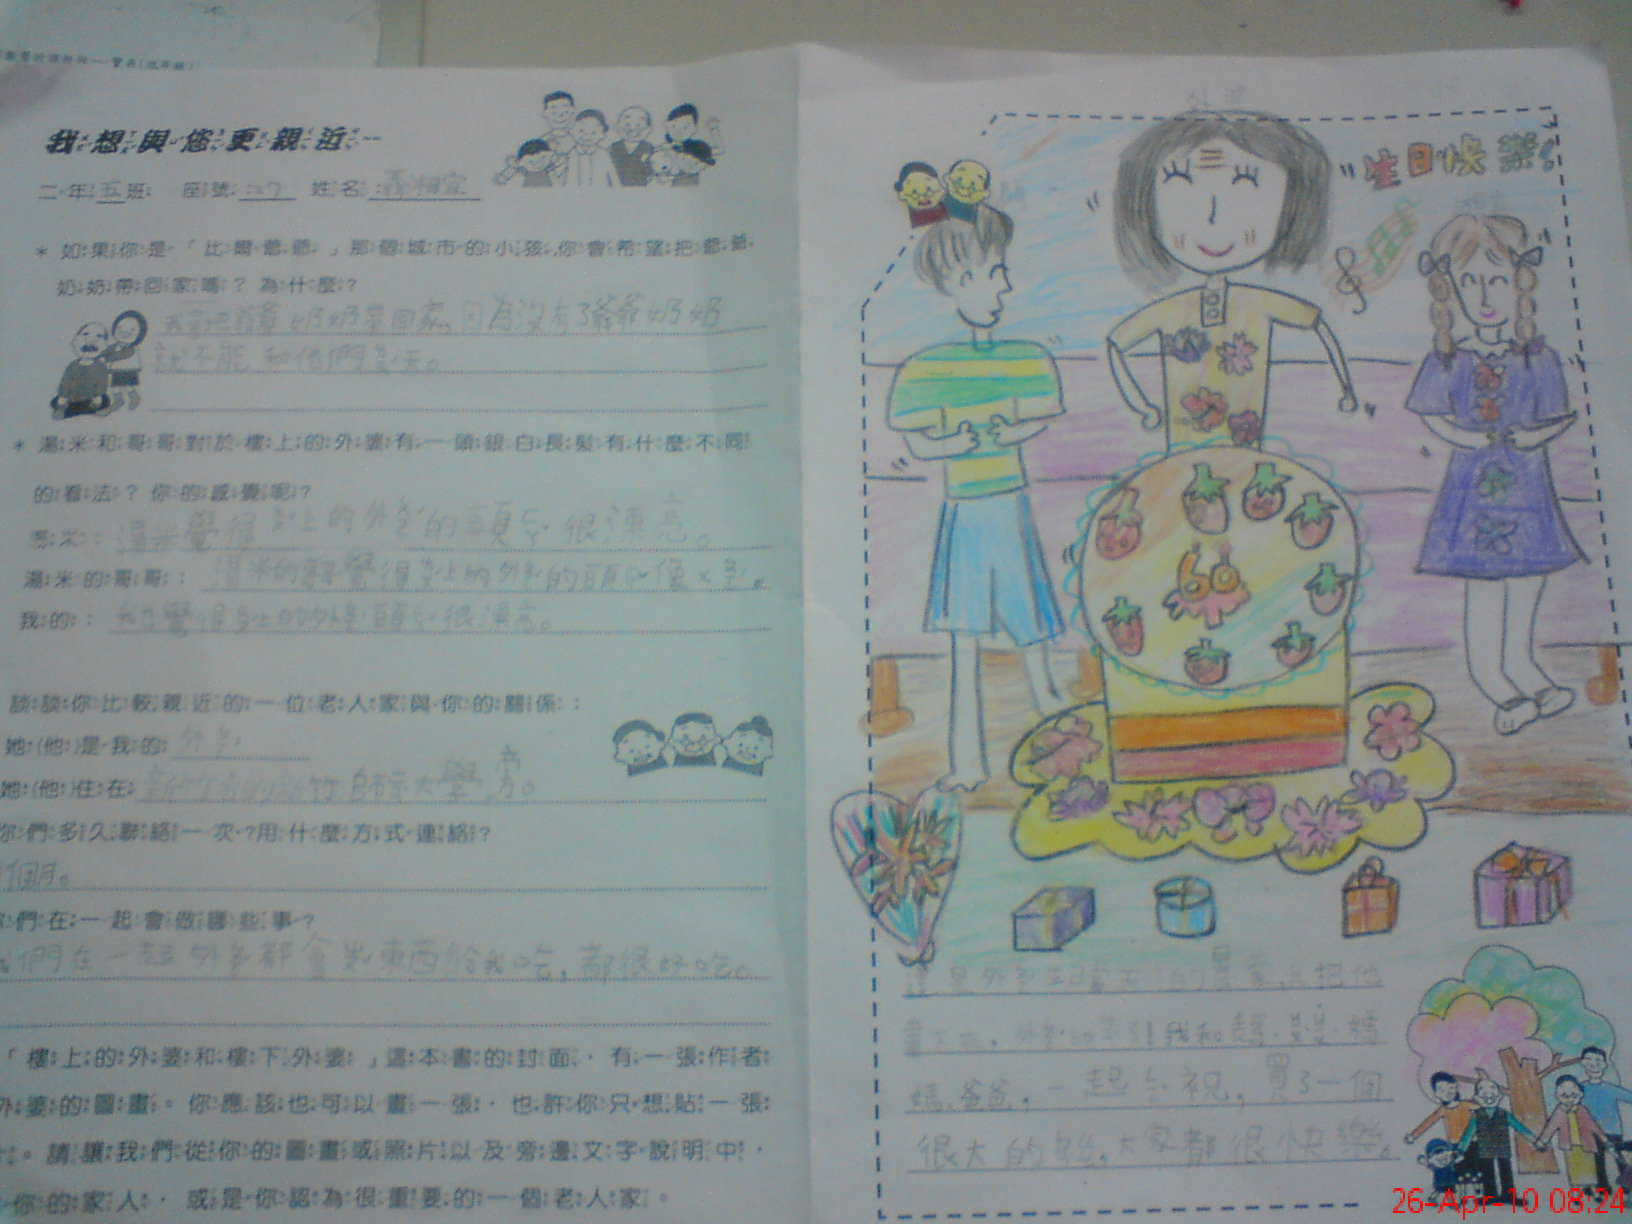 我想與您更親近
二年五班 座號 27 姓名
* 如果你是「比爾爺爺」那個城市的小孩,你會希望把爺爺
奶奶帶回家嗎?為什麼?
我會把爺爺奶奶帶回家,因為沒有了爺爺奶奶
就不能和他們聊天。
* 湯米和哥哥對於樓上的外婆有一頭銀白長髮有什麼不同
的看法?你的感覺呢?
湯米: 湯米覺得樓上的外婆的頭髮很漂亮。
湯米的哥哥: 湯米的哥哥覺得樓上的外婆的頭髮像
我的: 我也覺得樓上的外婆頭髮很漂亮。
談談你比較親近的一位老人家與你的關係:
她(他)是我的: 外婆
她(他)住在: 新竹市的新竹師院大學旁。
你們多久聯絡一次?用什麼方式連絡?
個月。
你們在一起會做哪些事?
我們在一起外婆都會煮東西給我吃,都很好吃。
「樓上的外婆和樓下外婆」這本書的封面,有一張作者
外婆的圖畫。你應該也可以畫一張,也許你只想貼一張
。請讓我們從你的圖畫或照片以及旁邊文字說明中,
你的家人,或是你認為很重要的一個老人家。
生日快樂!
60
這是外婆生日當天的景象,我把他
畫下來,外婆60歲了!我和
媽、爸爸,一起台祝,買了一個
很大的蛋糕,大家都很快樂。
26-Apr-10 08:24